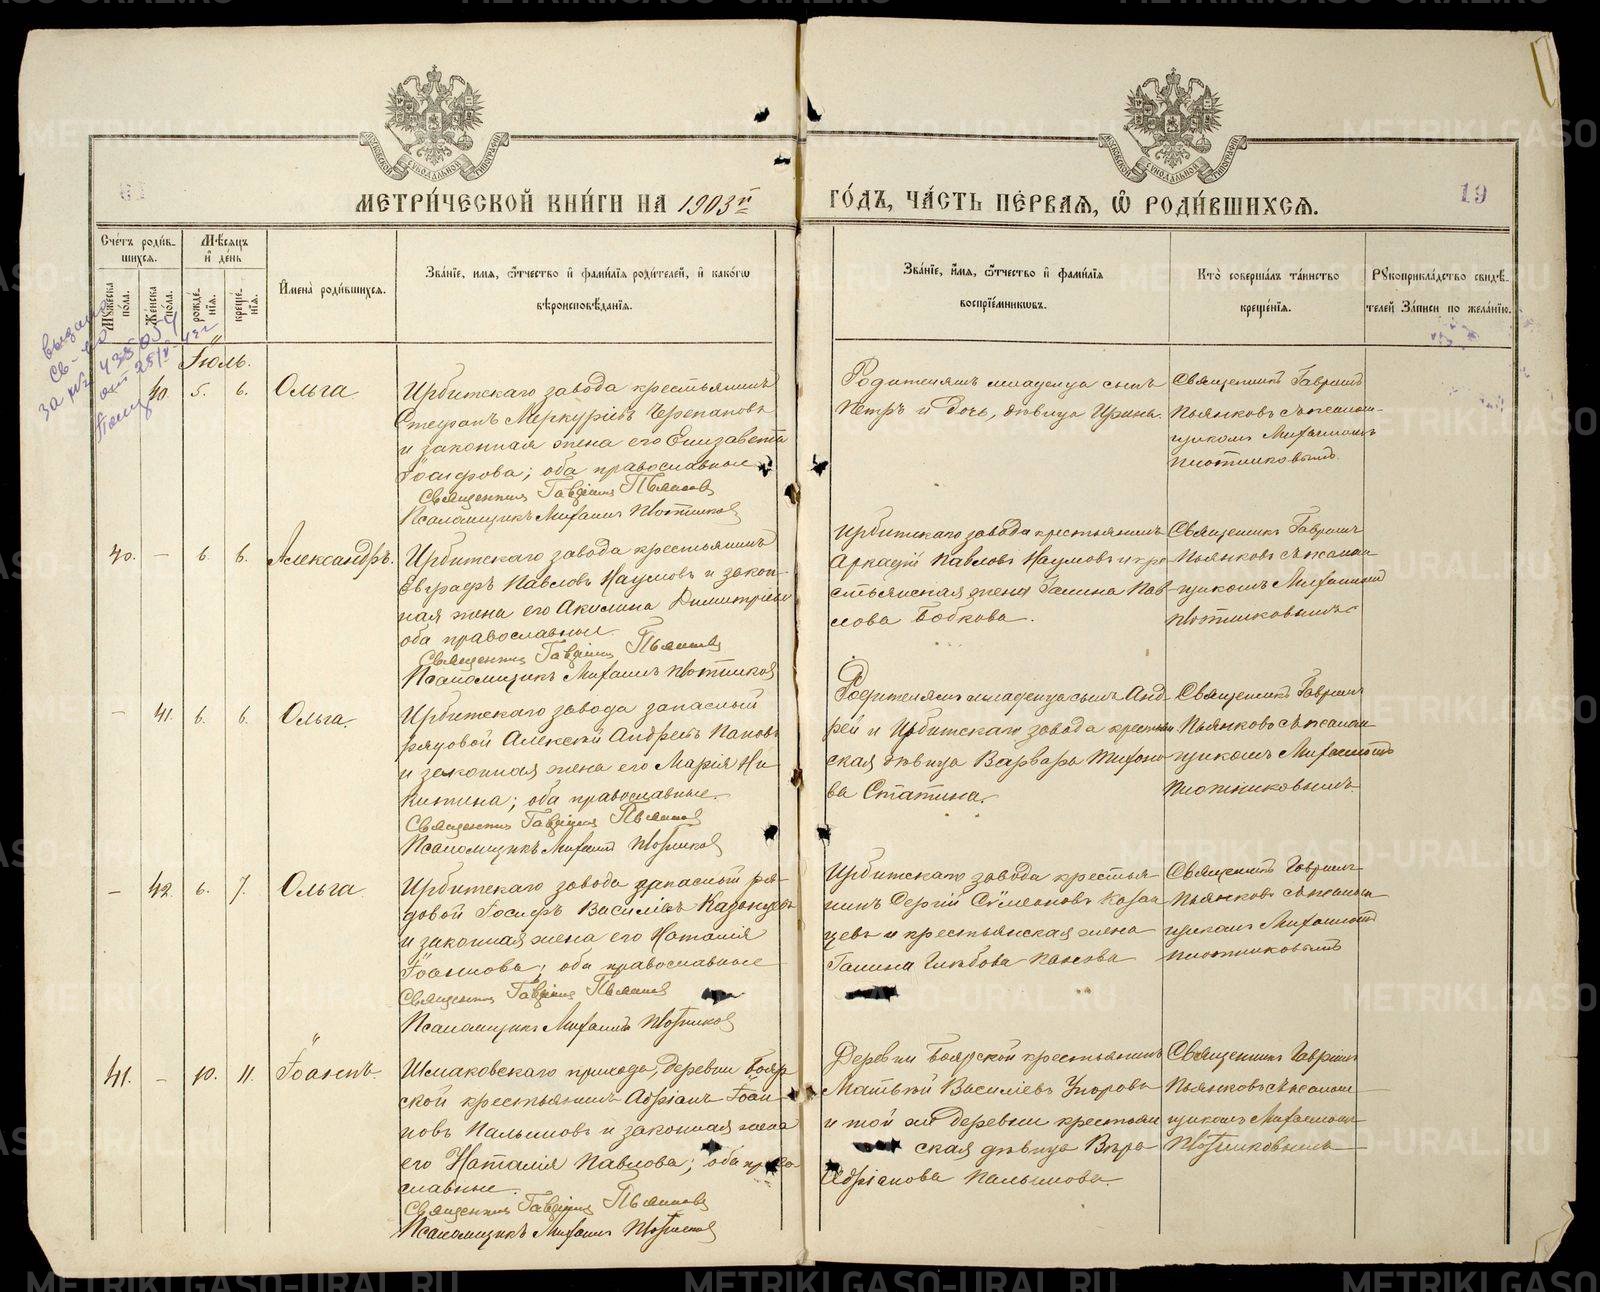 МЕТРИ́ЧЕСКОЙ КНИ́ГИ НА 1903 г.
ГО́ДЪ, ЧА́СТЬ ПЕ́РВАЯ, Ѽ РОДИ́ВШИХСЯ.
19
Сче́тъ роди́в-
шихся.
Мѣ́сяцъ
и҆ де́нь
Мꙋ́жеска по́ла.
Же́нска по́ла.
рожде́-нїя.
креще́-нїя.
И҆мена̀ роди́вшихся.
Зва́нїе, имя, ѻ҆́тчество и҆ фами́лїя роди́телей, и҆ како́гѡ
вѣроисповѣ́данїя.
Зва́нїе, и҆́мя, ѻ҆́тчество и҆ фами́лїя
воспрїе́мниковъ.
Кто̀ соверша́лъ та́инство
креще́нїя.
Рꙋкоприкла́дство свидѣ́-
телей За́писи по жела́нїю.
Іюль.
40. 5. 6. Ольга
Ирбитскаго завода крестьянинъ
Стефанъ Меркуріевъ Черепановъ
и законная жена его Елизавета
Іосифова; оба православные
Священникъ Гавріилъ Пьянковъ
Псаломщикъ Михаилъ Плотниковъ
Родителямъ младенца сынъ
Петръ и дочь, дѣвица Ирина.
Священникъ Гавріилъ
Пьянковъ съ псалом-
щикомъ Михаиломъ
Плотниковымъ
40. – 6. 6. Александръ.
Ирбитскаго завода крестьянинъ
Евграфъ Павловъ Наумовъ и закон-
ная жена его Акилина Димитріева
оба православные
Священникъ Гавріилъ Пьянковъ
Псаломщикъ Михаилъ Плотниковъ
Ирбитскаго завода крестьянинъ
Аркадій Павловъ Наумовъ и кре-
стьянская жена Галина Пав-
лова Бобкова.
Священникъ Гавріилъ
Пьянковъ съ псалом-
щикомъ Михаиломъ
Плотниковымъ
– 41. 6. 6. Ольга
Ирбитскаго завода запасный
рядовой Алексѣй Андреевъ Пановъ
и законная жена его Марія Ни-
китина; оба православные.
Священникъ Гавріилъ Пьянковъ
Псаломщикъ Михаилъ Плотниковъ
Родителямъ младенца сынъ Анд-
рей и Ирбитскаго завода крестьян
ская дѣвица Варвара Тихоно-
ва Статина.
Священникъ Гавріилъ
Пьянковъ съ псалом-
щикомъ Михаиломъ
Плотниковымъ
– 42. 6. 7. Ольга
Ирбитскаго завода запасный ря-
довой Іосифъ Василіевъ Казанцевъ
и законная жена его Наталія
Іоаннова; оба православные
Священникъ Гавріилъ Пьянковъ
Псаломщикъ Михаилъ Плотниковъ
Ирбитскаго завода крестья-
нинъ Сергій Сѵмеоновъ Казан
цевъ и крестьянская жена
Галина Глѣбова Панова
Священникъ Гавріилъ
Пьянковъ съ псалом-
щикомъ Михаиломъ
Плотниковымъ
41. – 10. 11. Іоаннъ
Шмаковскаго прихода, деревни Бояр
ской крестьянинъ Адріанъ Іоан-
новъ Пальшовъ и законная жена
его Наталія Павлова; оба право
славные.
Священникъ Гавріилъ Пьянковъ
Псаломщикъ Михаилъ Плотниковъ
Деревни Боярской крестьянинъ
Матѳій Василіевъ Упоровъ
и той же деревни крестьян
ская дѣвица Вѣра
Адріанова Пальшова
Священникъ Гавріилъ
Пьянковъ съ псалом
щикомъ Михаиломъ
Плотниковымъ
METRIKI.GASO-URAL.RU